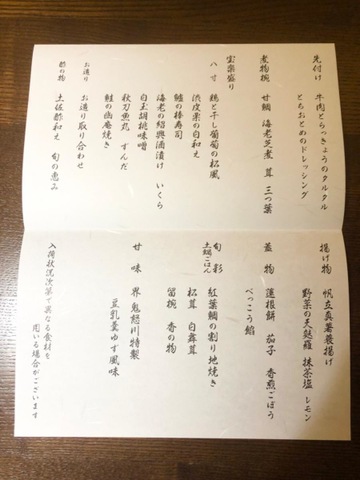 先付け 牛肉とらっきょうのタルタル
とちおとめのドレッシング
煮物椀 甘鯛 海老芝煮 茸 三つ葉
宝楽盛り
八寸 鶏と干し葡萄の松風
渋皮栗の白和え
鱧の棒寿司
海老の紹興酒漬け いくら
白玉胡桃味噌
秋刀魚丸 ずんだ
鮭の幽庵焼き
お造り お造り取り合わせ
酢の物 土佐酢和え 旬の恵み
揚げ物 帆立真薯蓑揚げ
野菜の天麩羅 抹茶塩 レモン
蓋物 蓮根餅 茄子 香煎ごぼう
べっこう餡
旬彩 紅葉鯛の割り地焼き
土鍋ごはん 松茸 白舞茸
留椀 香の物
甘味 界 鬼怒川特製
豆乳羹ゆず風味
入荷状況次第で異なる食材を
用いる場合がございます